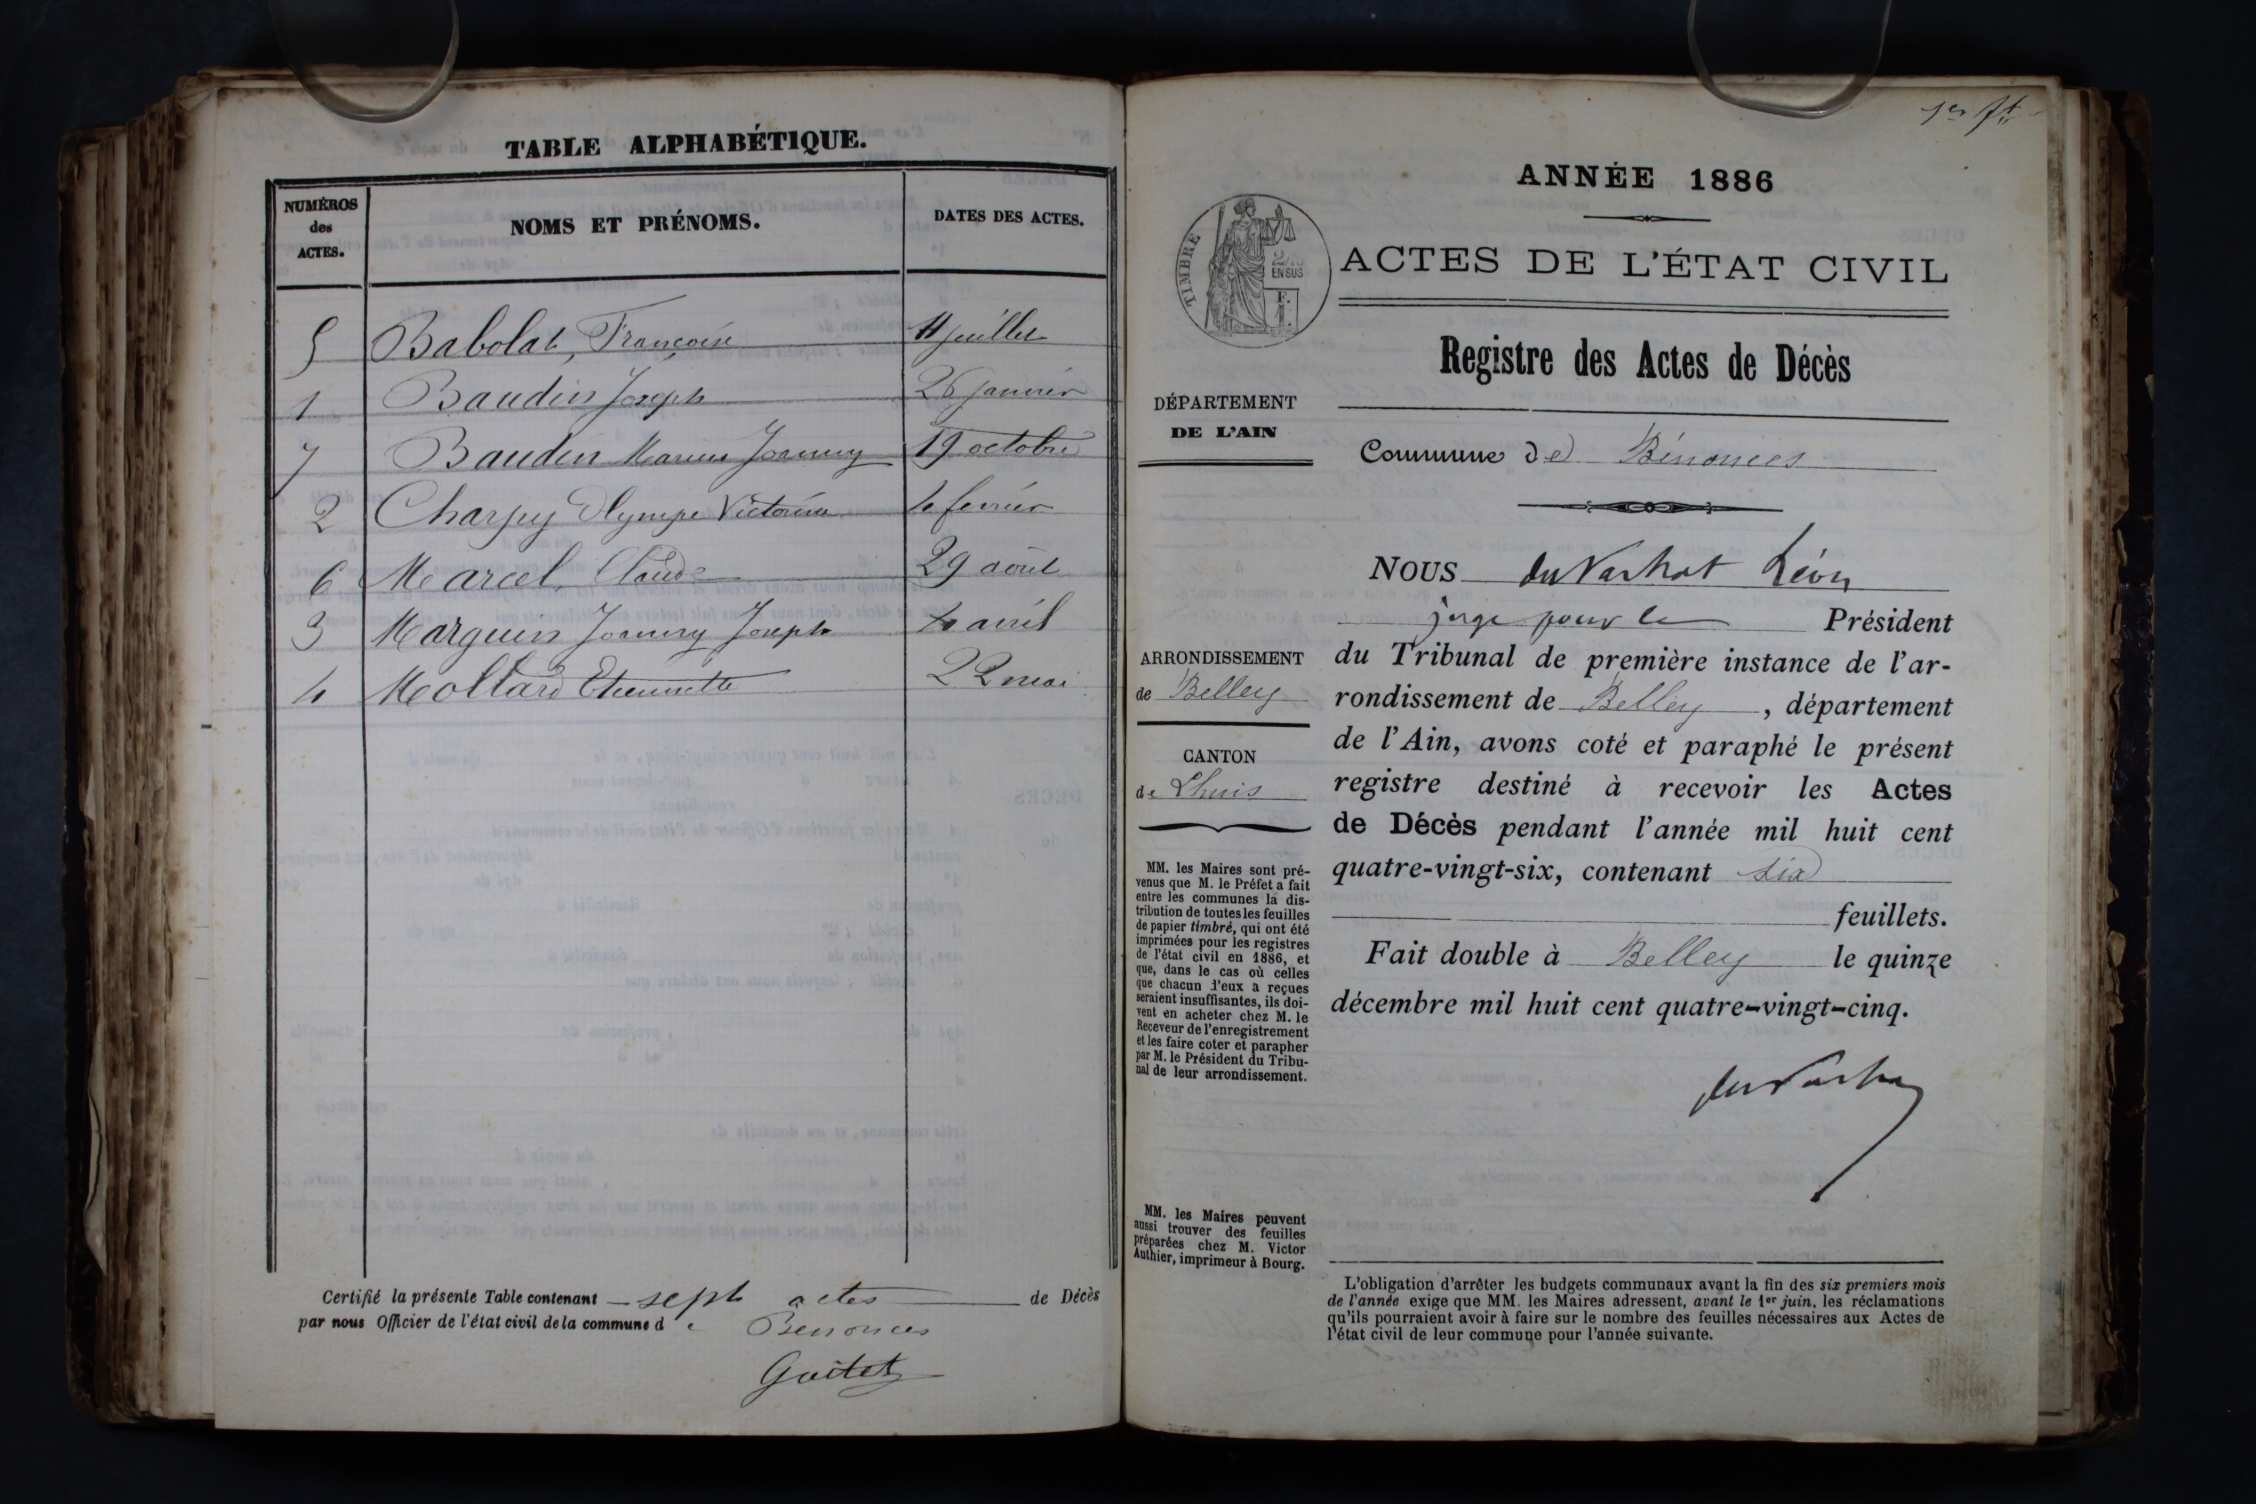 TABLE ALPHABÉTIQUE.
NUMÉROS
des
ACTES.
NOMS ET PRÉNOMS.
DATES DES ACTES.
5 Babolat, Françoise 11 juillet
1 Baudin Joseph 26 janvier
7 Baudin Marius Joanny 19 octobre
2 Charpy Olympe Victorine 4 février
6 Marcel, Claude 29 août
3 Marguin Joanny Joseph 4 avril
4 Mollard Etiennette 22 mai
Certifié la présente Table contenant sept actes de Décès
par nous Officier de l'état civil de la commune de Benonces
Goitet
1er ft
ANNÉE 1886
TIMBRE
2/10
EN SUS
F.
1.
ACTES DE L'ÉTAT CIVIL
Registre des Actes de Décès
DÉPARTEMENT
DE L'AIN
Commune de Bénonces
ARRONDISSEMENT
de Belley
CANTON
de Lhuis
MM. les Maires sont pré-
venus que M. le Préfet a fait
entre les communes la dis-
tribution de toutes les feuilles
de papier timbré, qui ont été
imprimées pour les registres
de l'état civil en 1886, et
que, dans le cas où celles
que chacun d'eux a reçues
seraient insuffisantes, ils doi-
vent en acheter chez M. le
Receveur de l'enregistrement
et les faire coter et parapher
par M. le Président du Tribu-
nal de leur arrondissement.
MM. les Maires peuvent
aussi trouver des feuilles
préparées chez M. Victor
Authier, imprimeur à Bourg.
NOUS Léon
juge pour le Président
du Tribunal de première instance de l'ar-
rondissement de Belley, département
de l'Ain, avons coté et paraphé le présent
registre destiné à recevoir les Actes
de Décès pendant l'année mil huit cent
quatre-vingt-six, contenant six
feuillets.
Fait double à Belley le quinze
décembre mil huit cent quatre-vingt-cinq.
L'obligation d'arrêter les budgets communaux avant la fin des six premiers mois
de l'année exige que MM. les Maires adressent, avant le 1er juin, les réclamations
qu'ils pourraient avoir à faire sur le nombre des feuilles nécessaires aux Actes de
l'état civil de leur commune pour l'année suivante.